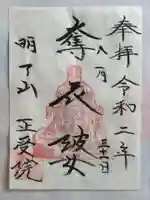 奉拝 令和二年
八月三十一日
奪衣婆
明了山
正受院